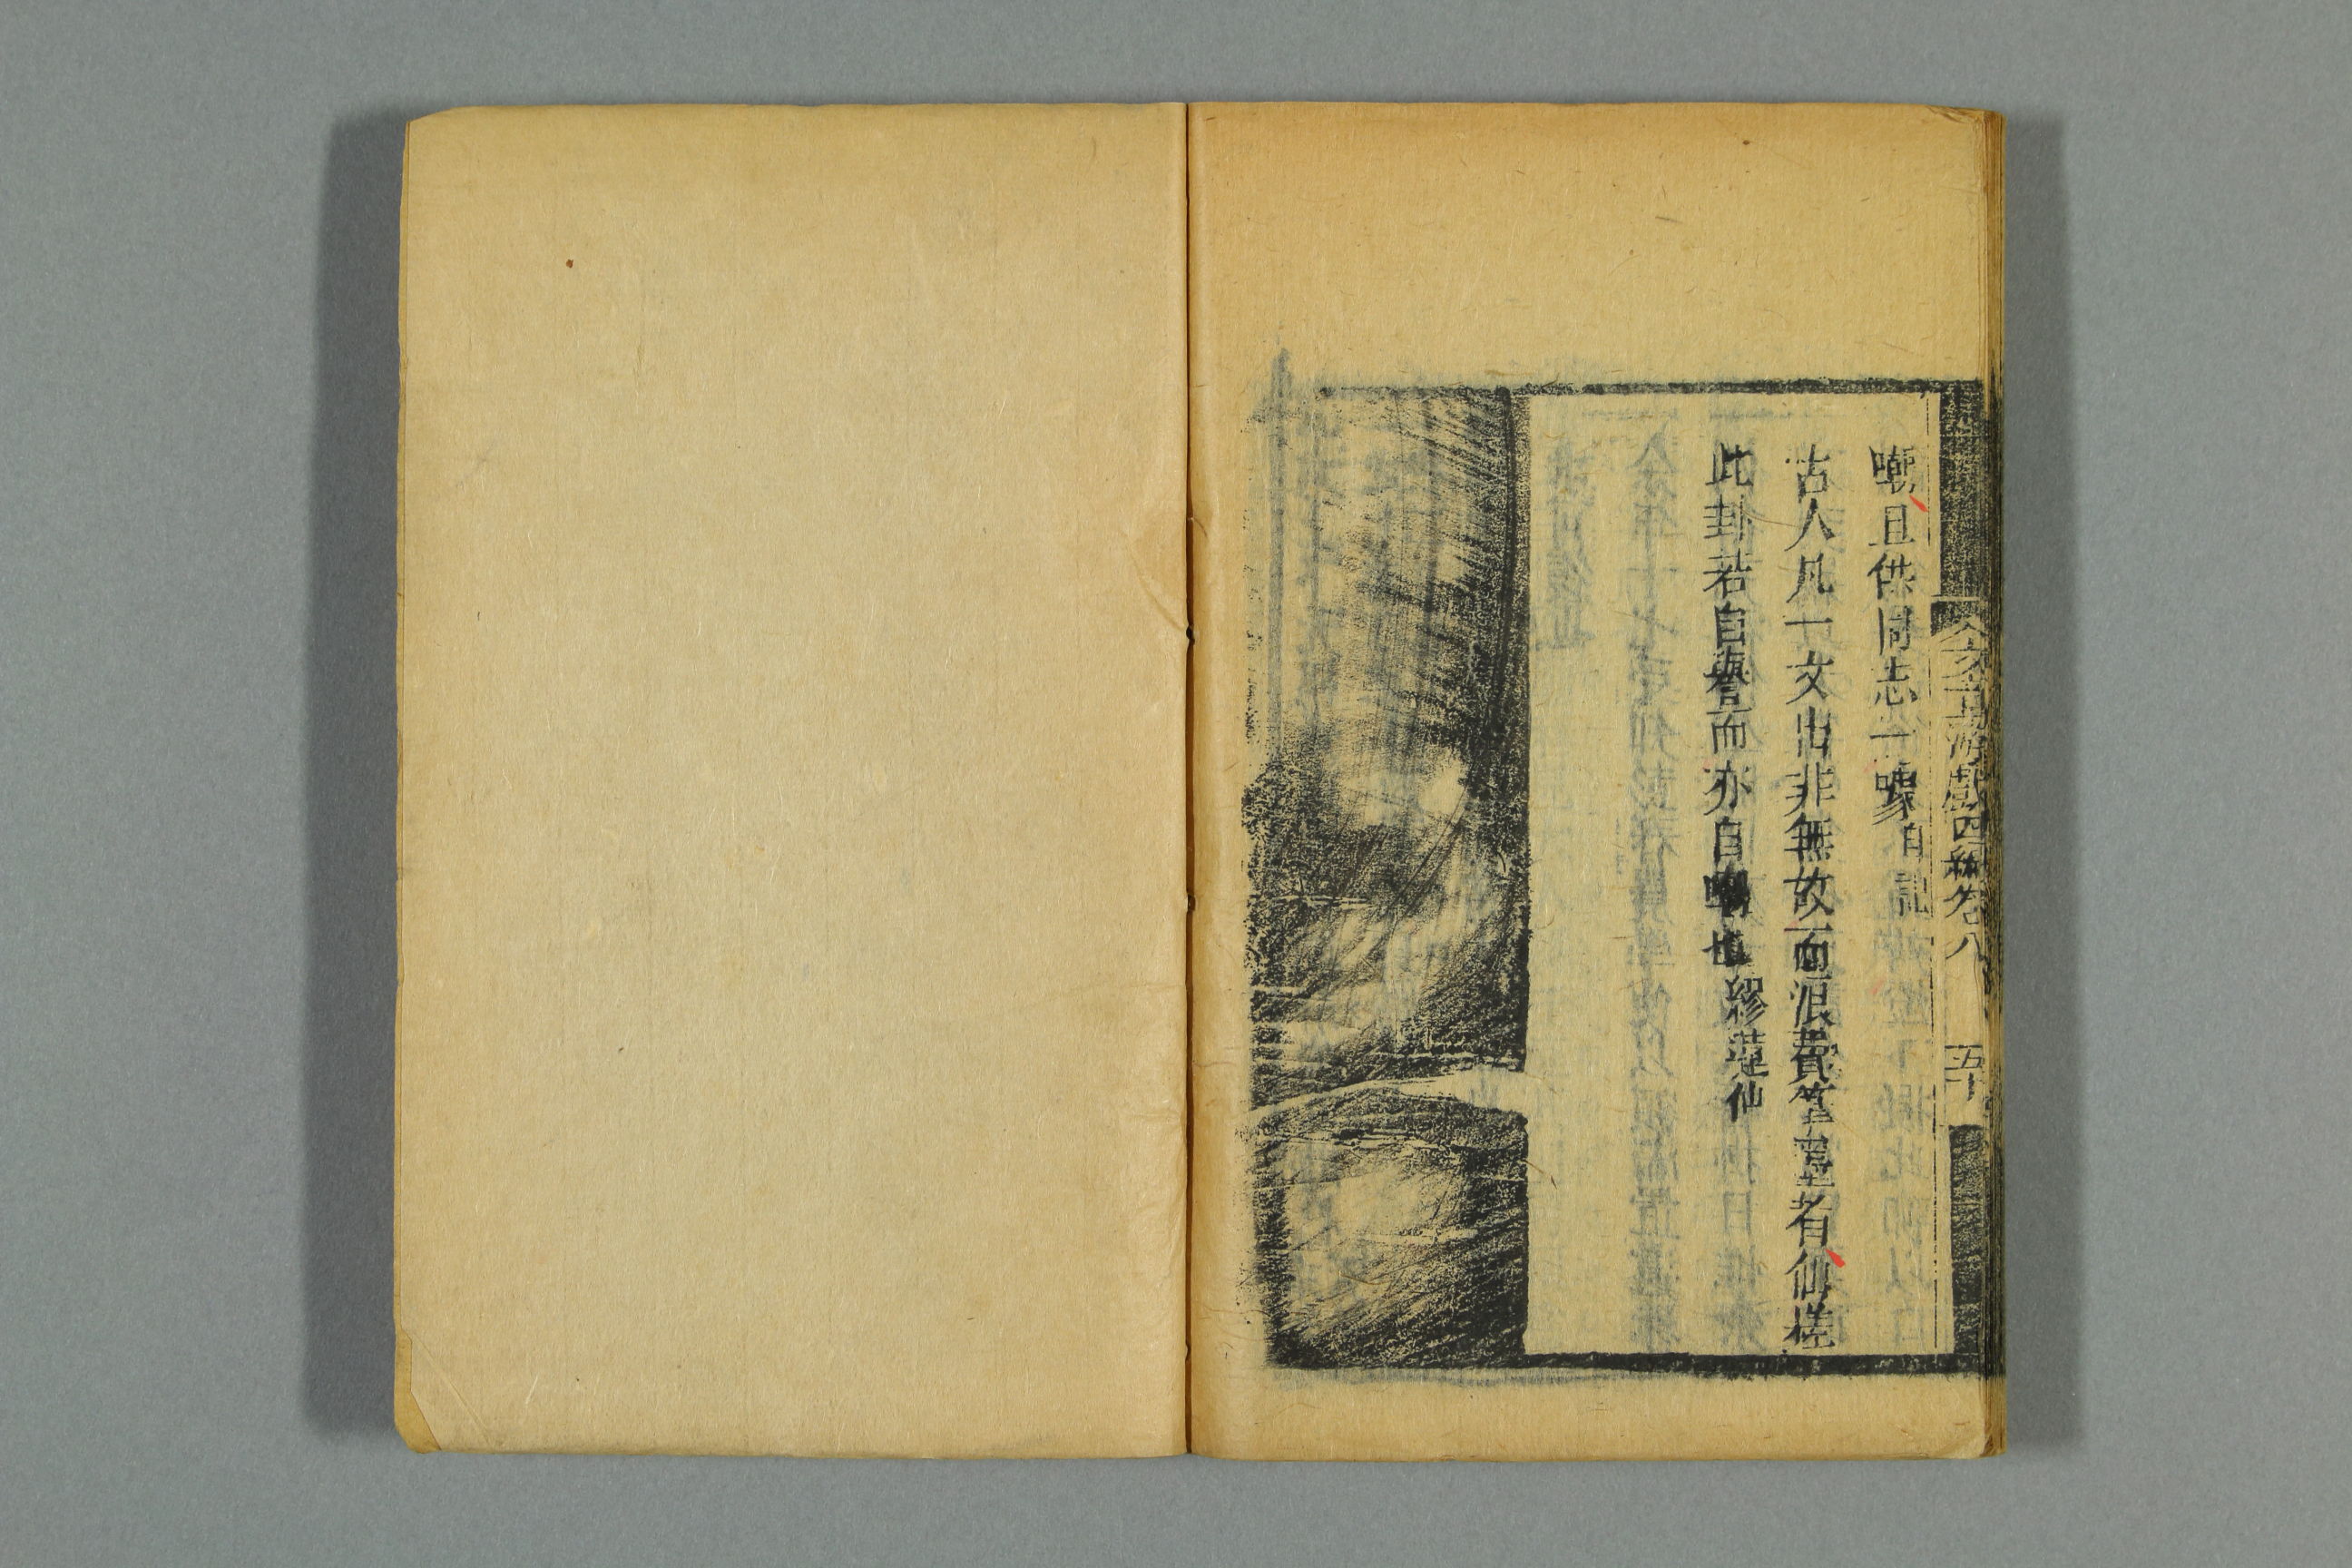 嘲且供同志一噱自記
古人凡一文出非無故而浪費筆墨者仙槎
此卦若自譽而亦自嘲也繆蓮仙
文章游戲四編卷八 五十